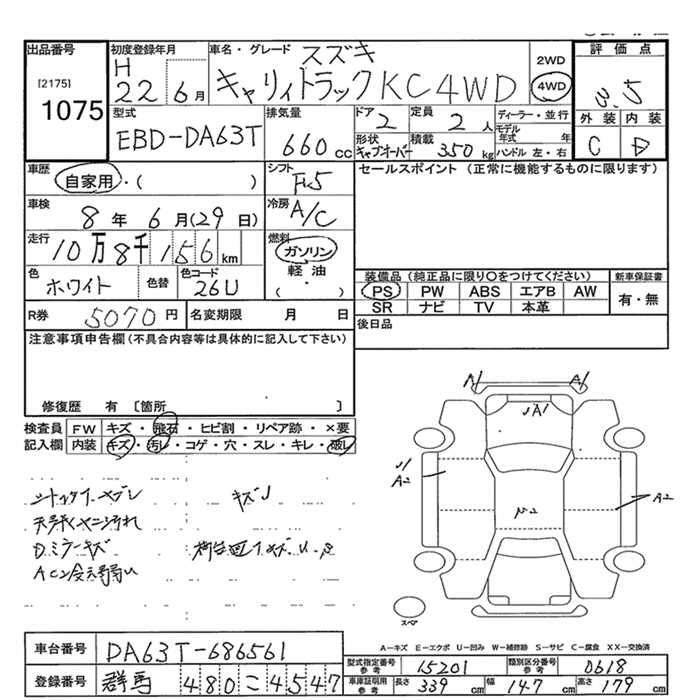 出品番号
[2175]
1075
初度登録年月
H
22 6月
車名・グレード スズキ
キャリィトラックKC4WD
2WD
4WD
評価点
3.5
型式
EBD-DA63T
排気量
660 cc
ドア
2
定員
2人
ディーラー・並行
モデル年式 年
ハンドル 左・右
形状
キャブオーバー
積載
350kg
外装 内装
C D
車歴
自家用・( )
シフト
F5
セールスポイント (正常に機能するものに限ります)
車検
8年 6月(29日)
冷房
A/C
走行
10万8千156km
燃料
ガソリン
軽油
( ・ )
色
ホワイト
色替
色コード
26U
装備品 (純正品に限り○をつけてください)
新車保証書
PS PW ABS エアB AW
SR ナビ TV 本革
有・無
R券 5070円
名変期限 月 日
後日品
注意事項申告欄(不具合内容等は具体的に記入して下さい)
修復歴 有 〔箇所 〕
検査員 FW キズ・飛石・ヒビ割・リペア跡・×要
記入欄 内装 キズ・汚レ・コゲ・穴・スレ・キレ・破レ
天張ヤニ汚れ
Dミラーキズ
A1 A1
A1
A2
A2
スペア
A-キズ E-エクボ U-凹み W-補修跡 S-サビ C-腐食 XX-交換済
車台番号 DA63T-686561
登録番号 群馬 480こ4547
型式指定番号 参考 15201
類別区分番号 参考 0618
車庫証明用 参考 長さ 339cm 幅 147cm 高さ 179cm